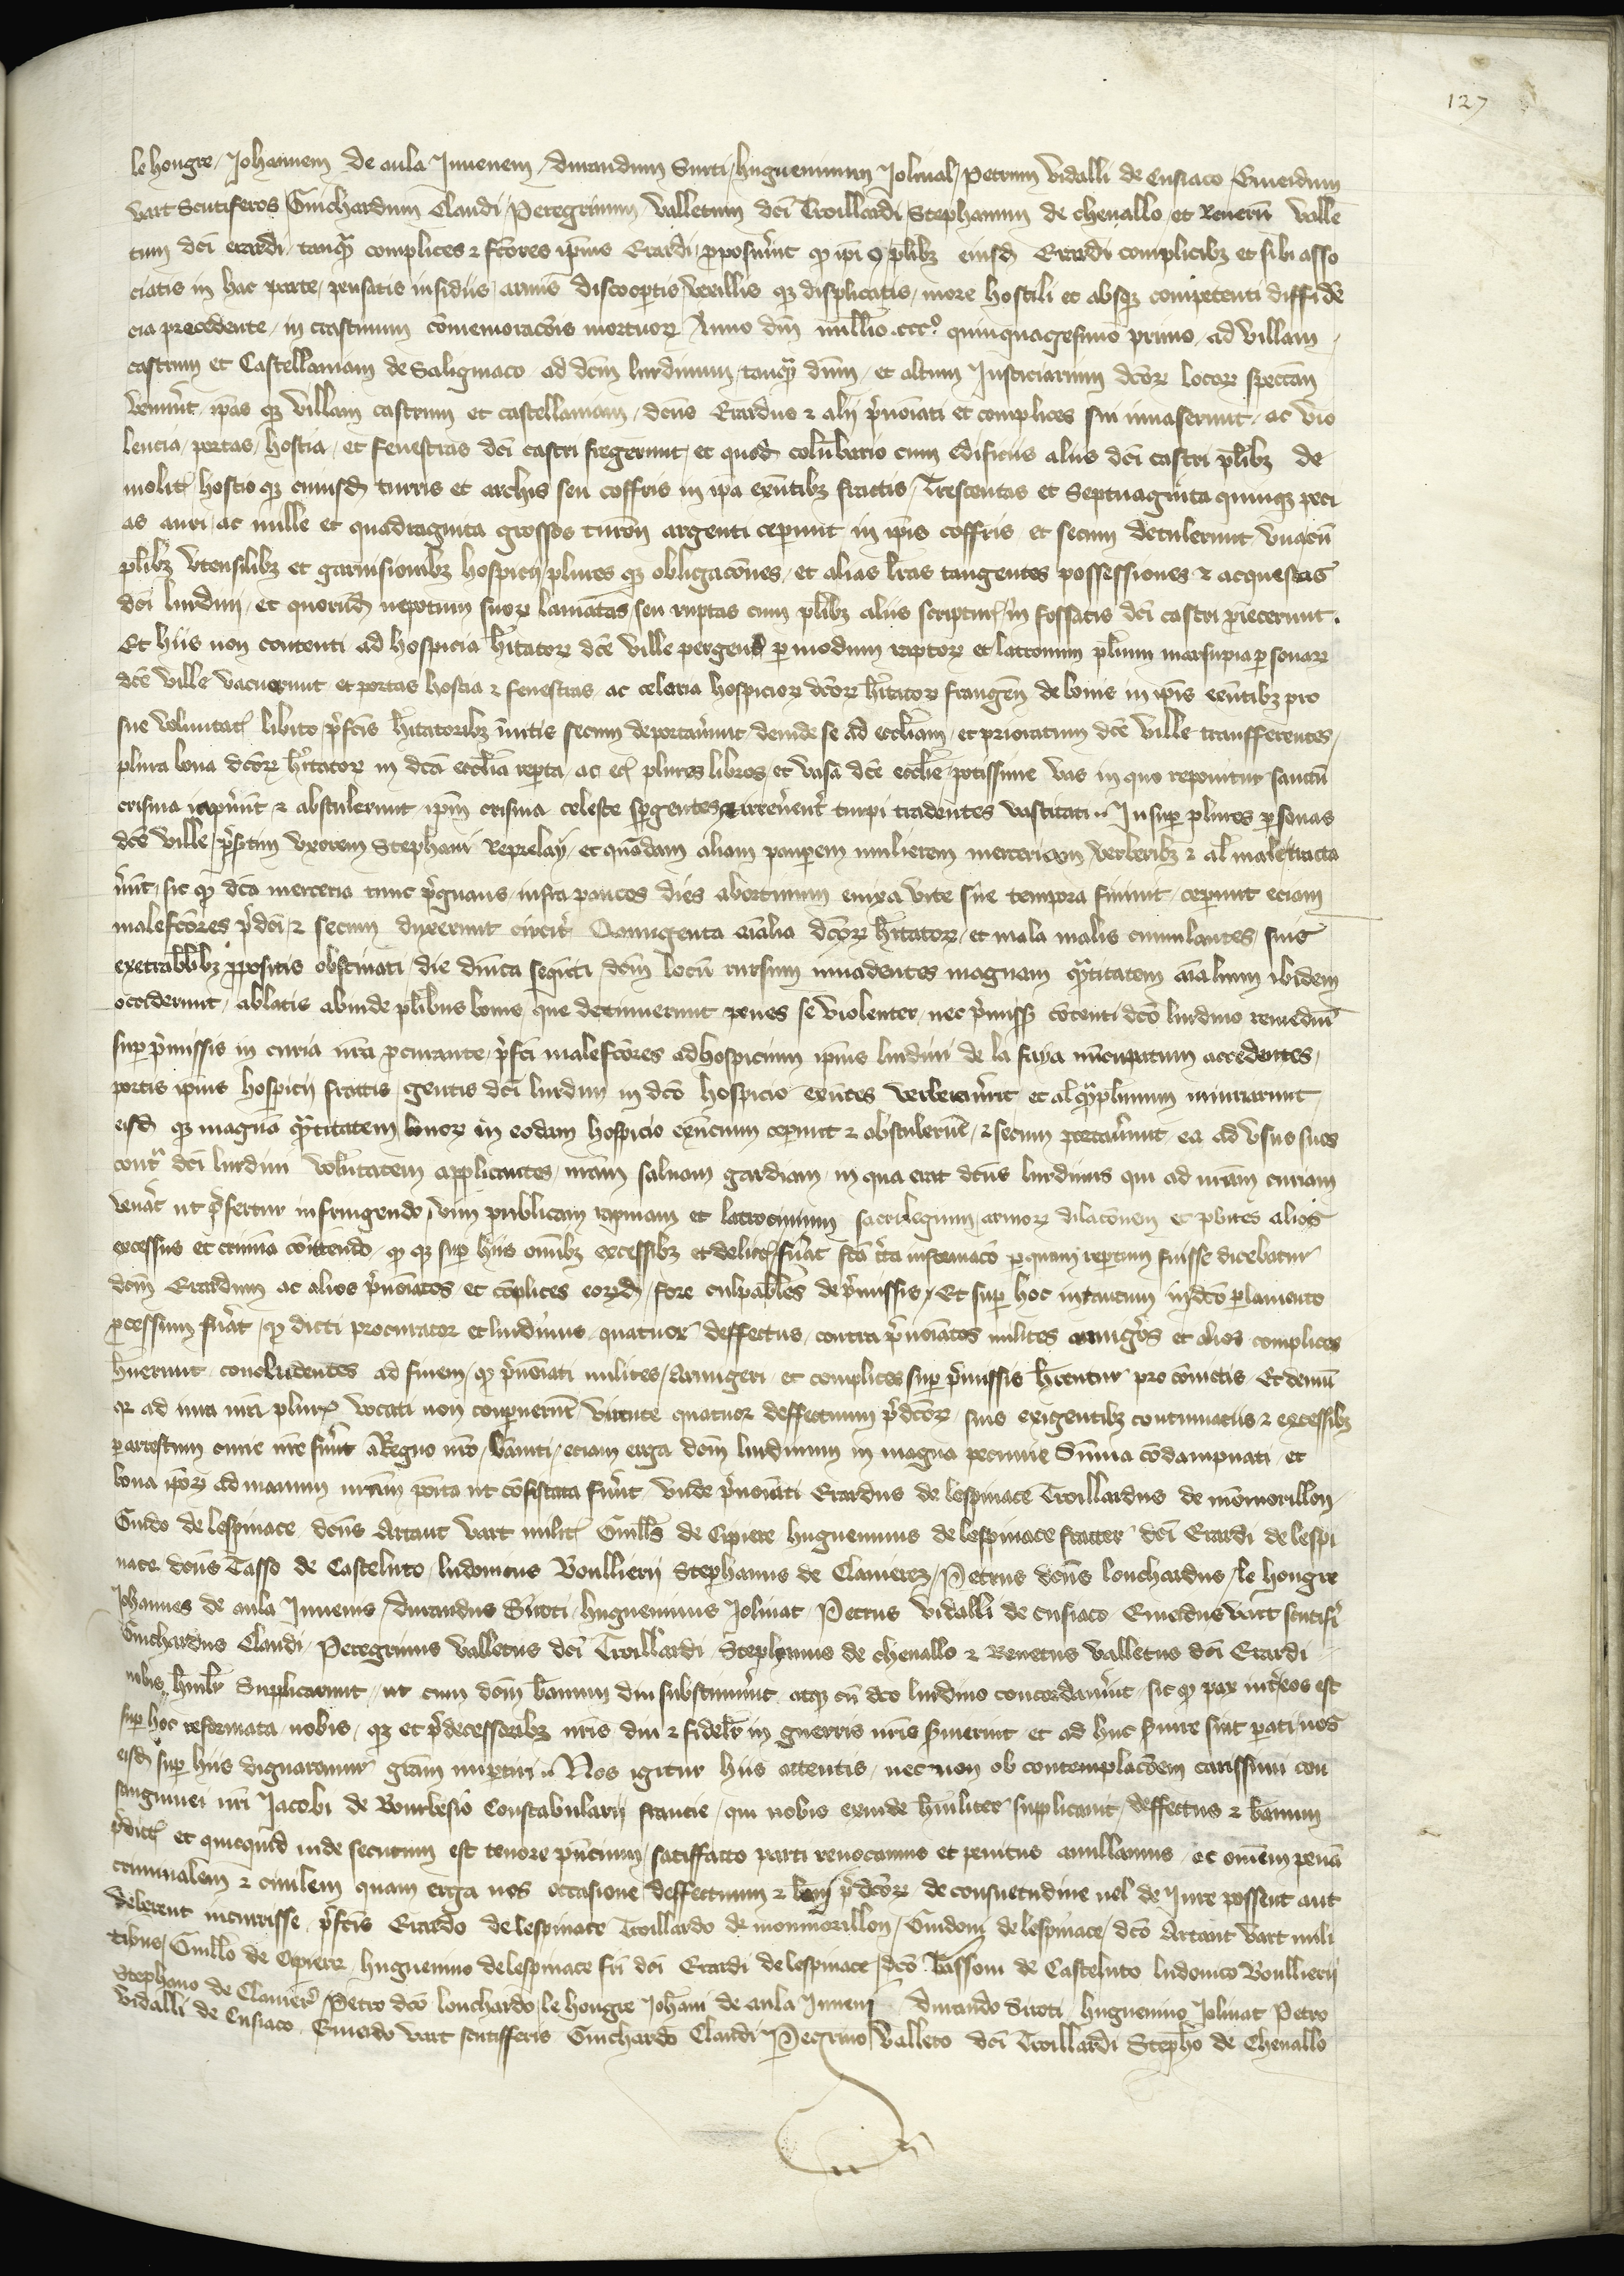 127
le hongre / Johannem de aula Juvenem / durandum Siroti / hugueninum Jolivat / Petrum vidalli de Cusiaco Emeidum
vart Scutiferos Guichardum Claudi / Peregrinum valletum dci Troillardi Stephanum de chevallo et Renetū valle
tum dci erardi / tanqȝ complices ⁊ fcores ipius Erardi / proposuerūt qꝫ ipi ꝯ plibȝ eiusd Erardi complicibȝ et sibi asso
ciatis in hac parte / pensatis insidiis armis discoopertis vexillis qȝ displicatis / more hostili et absqȝ competenti diffidē
cia precedente / in crastinum cōmemoracōis mortuorȝ Anno dni millīo cccͦ quinquagesimo primo / ad villam
castrum et Castellaniam de Saligniaco ad dcm lurdinum tanqȝ dnm / et altum Justiciarium dcorȝ locorȝ spectan
venerūt / ipas qȝ villam castrum et castellaniam / dcus Erardus ⁊ alij prenoiati et complices sui invaserunt / ac vio
lencia / portas / hostia / et fenestras dci castri fregerunt / et quod columbario cum edificiis aliis dci castri plibȝ de
molit hostio qȝ cuiusd turris et archis seu coffris in ipa exntibȝ fractis / Trescentas et Septuaginta quinqȝ peci
as auri / ac mille et quadraginta grossos turon argenti ceperunt in ipis coffris et secum detulerunt unacū
plibȝ utensilibȝ et garnisionibȝ hospicij / plures qȝ obligacōnes / et alias lras tangentes possessiones ⁊ acquestas
dci lurdini / et quorūd nepotum suorȝ laniatas seu ruptas cum plibȝ aliis scriptur / in fossatis dci castri proiecerunt.
Et hiis non contenti ad hospicia hitatorȝ dce ville pergend per modum raptorȝ et latronum plium marsupia personarȝ
dce ville vacuerunt et portas hostia ⁊ fenestras ac celaria hospiciorȝ dcorȝ hitatorȝ frangen de bonis in ipis exntibȝ pro
sue voluntat libito / prefcis hitatoribȝ invitis secum deportarunt deinde se ad eccliam / et prioratum dce ville transfferentes /
plura bona dcorȝ hitatorȝ in dca ecclia repta / ac et plures libros / et vasa dce ecclie / potissime vas in quo reponitur sanctū
crisma ceperūt ⁊ abstulerunt / ipm crisma celeste spergentes ⁊ irreverent turpi tradentes vastitati // Insuper plures personas
dce ville / presertim uxorem Stephani Reprelay / et quādam aliam pauperem mulierem merceriam verberibȝ ⁊ al maletracta
verūt / sic qꝫ dca merceria tunc pregnans / infra paucos dies abortivum enixa vite sue tempora finivit / ceperunt eciam
malefcores predci / ⁊ secum duxerunt circit Quingenta aialia dcorȝ hitatorȝ / et mala malis cumulantes / suis
execrabilibȝ propositis obstinati / die dnica sequenti dcm locū rursum invadentes magnam qȝtitatem aialium ibidem
occiderunt / ablatis abinde plibus bonis / que detinuerunt penes se violenter / nec premiss cotenti dco lurdino remediū
super premissis in curia nra procurante / prefci malefcores ad hospicium ipius lurdini de la faya nūcupatum accedentes /
portis ipius hospicij fractis / gentes dci lurdini in dco hospicio exntes verberarūt et al qȝplimum iniurarunt /
eisd qȝ magnā qȝtitatem bonorȝ in eodam hospicio exncium ceperunt ⁊ abstulerūt / ⁊ secum portarūt / ea ad usus suos
contr dci lurdini voluntatem applicantes / nram salvam gardiam / in qua erat dcus lurdinus qui ad nram curiam
venāt ut prefertur infringendo / vim publicam rapinam et latrocinium sacrilegium / armorȝ dilacōnem et plures alios
excessus et crimina cōmittendo / qꝫ qȝ super hiis omibȝ excessibȝ et delict fuāt fca cta informacō per quam repertum fuisse dicebatur
dcm Erardum ac alios prenoiatos et cōplices eorȝd / fore culpabiles de premissis / Et super hoc intantum in dco parlamento
processum fuāt / qꝫ dicti procurator et lurdinus quatuor deffectus / contra prenoiatos milites armigeros et alios complices
huerunt concludentes ad finem / qꝫ prenoiati milites / Armigeri et complices super premissis hrentur pro cōvictis Et demū
qȝ ad iura nra plurs vocati non comparuerūt / virtute quatuor deffectuum predcorȝ suis exigentibȝ contumaciis ⁊ excessibȝ
per arrestum curie nre fuerūt a Regno nro / banniti / eciam erga dcm lurdinum in magna pecunie Sūma cōdampnati / et
bona iporȝ ad manum nram posita ut cōfiscata fuerūt / unde prenoiati Erardus de lespinace Troillardus de mōmorillon
Guido de lespinace dcus Artaut vart milit Guills de Cipiere hugueninus de lespinace fratter dci Erardi de lespi
nace dcus Tasso de Casteluto ludovicus Boullierij Stephanus de Clavierez / Petrus dcus louchardus / le hongre
Johannes de aula Juvenis / durandus Siroti / hugueninus Jolivat / Petrus vidalli de cusiaco Emeidus vart scutifi
Guichardus Claudi / Peregrinus valletus dci Troillardi / Stephanus de chevallo ⁊ Renetus valletus dci Erardi
nobis humilr Supplicarunt / ut cum dcm bannum diu substinuerūt atqȝ cū dco lurdino concordaverūt / sic qꝫ pax inter eos est
super hoc reformata / nobis / qȝ et predecessoribȝ nris diu ⁊ fidelr in guerris nris servierunt et ad huc servire sint parati / nos
eisd super hiis dignaremur grām impertiri // Nos igitur hiis attentis / nec non ob contemplacōem carissimi con
sanguinei nri Jacobi de Bourbesio Constabularij francie / qui nobis exinde humiliter supplicavit / deffectus ⁊ bannum
predict et quicquid inde secutum est tenore pncium / satiffacto parti revocamus et penitus anullamus / ac omem penā
criminalem ⁊ civilem quam erga nos occasione deffectuum ⁊ banni predcorȝ de consuetudine vel de Jure possent aut
deberent incurrisse / prefcis Erardo de lespinace Troillardo de monmorillon / Guidoni de lespinace / dco Artaut vart mili
tibus / Guillo de Cipiere huguenino de lespinace fri dci Erardi de lespinace / dco Tassoni de Casteluto ludovico Boullierij
Stephano de Clavier / Petro dco louchardo / le hongre Johani de aula Juveni durando Siroti huguenino Jolivat Petro
vidalli de Cusiaco Emeido vart scutifferis Guichardo Claudi Peregrino valleto dci Troillardi Stepho de Chevallo